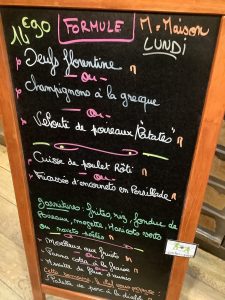 16€90 FORMULE M. Maison
LUNDI
Oeufs florentine
Ou
Champignons à la grecque
Ou
Velouté de poireaux "Patates"
Cuisse de poulet Rôti
Ou
Fricassée d'encornets en Persillade
Garnitures: frites, riz, fondue de
Poireaux, mogette, Haricots verts
ou navets rôtis
Moelleux aux fruits
Ou
Panna cotta à la fraise
Ou